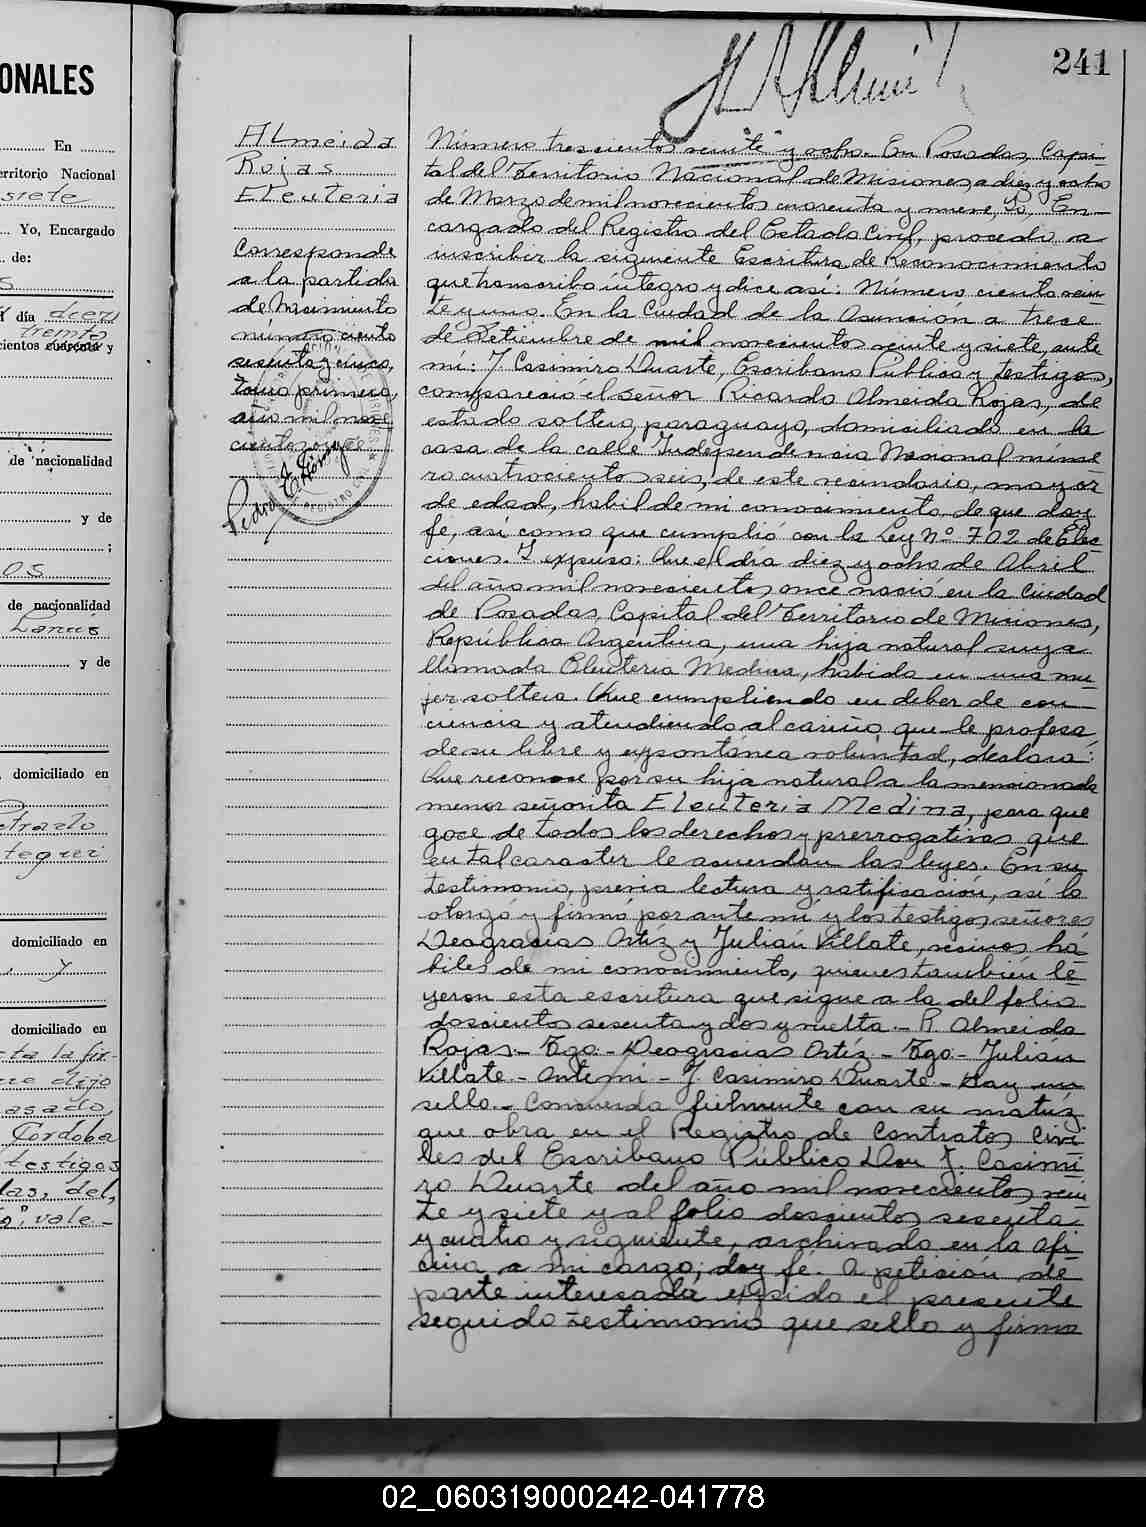 ONALES
En
erritorio Nacional
siete
Yo, Encargado
de:
s
día dieci
treinta
cientos cuarenta y
de nacionalidad
y de
;
os
de nacionalidad
Lanus
y de
domiciliado en
domiciliado en
y
domiciliado en
asado,
Cordoba
testigos
las, del,
vale-
241
Almeida
Rojas
Eleuteria
Corresponde
a la partida
de Nacimiento
número ciento
sesenta y cinco,
tomo primero,
año mil nove
cientos once
Pedro E. Gómez
REGISTRO
Número trescientos veinte y ocho. En Posadas, Capi-
tal del Territorio Nacional de Misiones a diez y ocho
de Marzo de mil novecientos cuarenta y nueve, Yo, En-
cargado del Registro del Estado Civil, procedo a
inscribir la siguiente Escritura de Reconocimiento
que transcribo íntegro y dice así: Número ciento vein-
te y uno. En la Ciudad de la Asunción a trece
de Setiembre de mil novecientos veinte y siete, ante
mí: J. Casimiro Duarte, Escribano Público y testigos,
compareció el señor Ricardo Almeida Rojas, de
estado soltero, paraguayo, domiciliado en la
casa de la calle Independencia Nacional núme-
ro cuatrocientos seis, de este vecindario, mayor
de edad, habil de mi conocimiento, de que doy
fe, así como que cumplió con la Ley Nº 702 de Elec-
ciones. Y expuso: Que el día diez y ocho de Abril
del año mil novecientos once nació en la Ciudad
de Posadas, Capital del Territorio de Misiones,
República Argentina, una hija natural suya
llamada Eleuteria Medina, habida en una mu-
jer soltera. Que cumpliendo un deber de con-
ciencia y atendiendo al cariño que le profesa,
de su libre y expontánea voluntad, declara:
Que reconoce por su hija natural a la mencionada
menor señorita Eleuteria Medina, para que
goce de todos los derechos y prerrogativas que
en tal caracter le acuerdan las leyes. En su
testimonio, previa lectura y ratificación, así lo
otorgó y firmó por ante mí y los testigos señores
Deogracias Ortíz y Julián Villate, vecinos há-
biles de mi conocimiento, quienes también le-
yeron esta escritura que sigue a la del folio
doscientos sesenta y dos y vuelta.- R. Almeida
Rojas.- Tgo.- Deogracias Ortíz - Tgo.- Julián
Villate.- Ante mí - J. Casimiro Duarte - Hay un
sello.- Concuerda fielmente con su matriz
que obra en el Registro de Contratos Civi-
les del Escribano Público Don J. Casimi-
ro Duarte del año mil novecientos vein-
te y siete y al folio doscientos sesenta
y cuatro y siguiente, archivado en la ofi-
cina a mi cargo; doy fé. A petición de
parte interesada expido el presente
segundo testimonio que sello y firmo
02_060319000242-041778